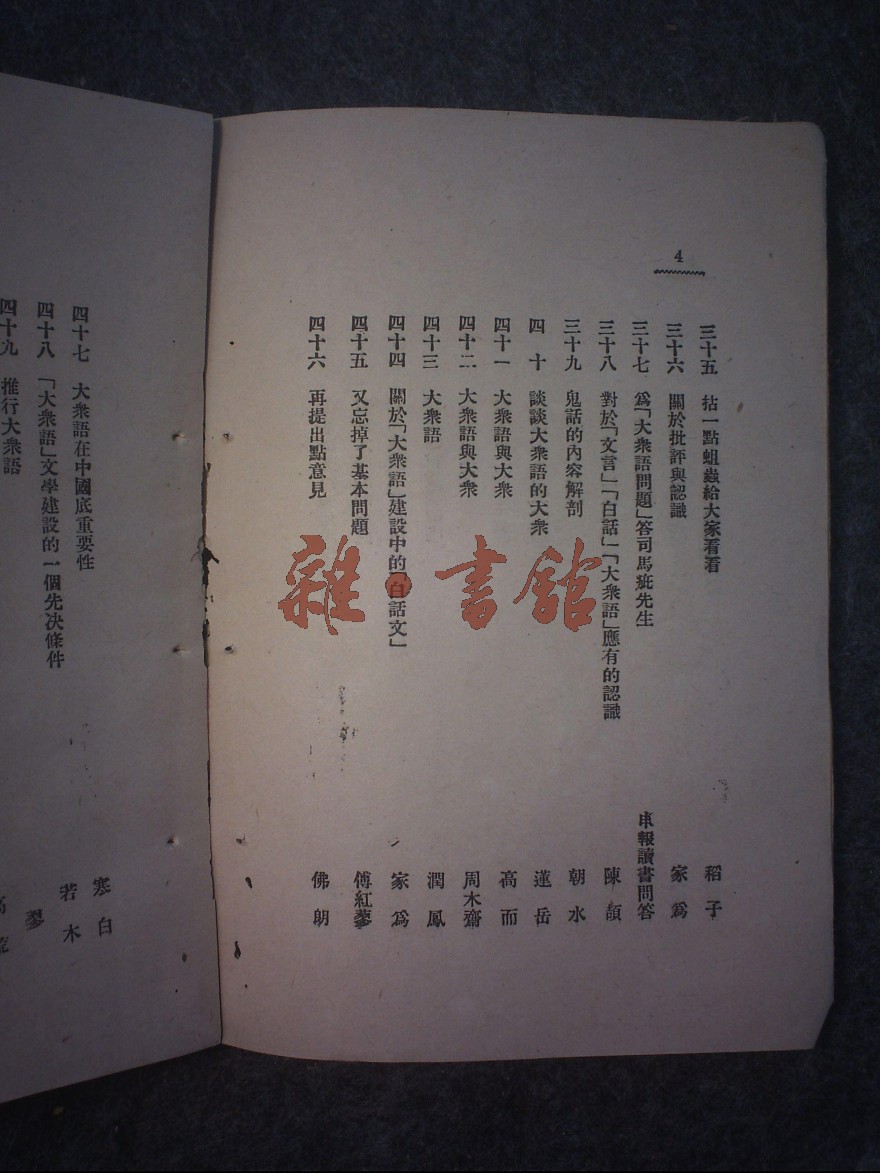 4
三十五 拈一點蛆蟲給大家看看 稻子
三十六 關於批評與認識 家爲
三十七 爲「大衆語問題」答司馬疵先生 申報讀書問答
三十八 對於「文言」「白話」「大衆語」應有的認識 陳頡
三十九 鬼話的內容解剖 朝水
四十 談談大衆語的大衆 蓮岳
四十一 大衆語與大衆 高而
四十二 大衆語與大衆 周木齋
四十三 大衆語 潤鳳
四十四 關於「大衆語」建設中的「白話文」 家爲
四十五 又忘掉了基本問題 傅紅蓼
四十六 再提出點意見 佛朗
四十七 大衆語在中國底重要性 寒白
四十八 「大衆語」文學建設的一個先决條件 若木
四十九 推行大衆語
雜·書館